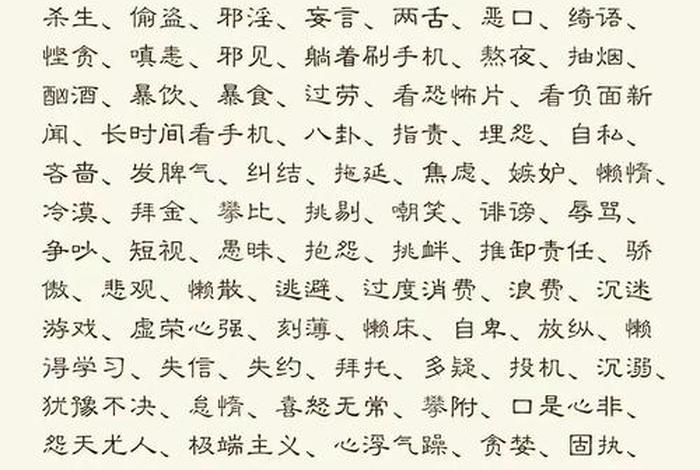 杀生、偷盗、邪淫、妄言、两舌、恶口、绮语、
悭贪、嗔恚、邪见、躺着刷手机、熬夜、抽烟、
酗酒、暴饮、暴食、过劳、看恐怖片、看负面新
闻、长时间看手机、八卦、指责、埋怨、自私、
吝啬、发脾气、纠结、拖延、焦虑、嫉妒、懒惰、
冷漠、拜金、攀比、挑剔、嘲笑、诽谤、辱骂、
争吵、短视、愚昧、抱怨、挑衅、推卸责任、骄
傲、悲观、懒散、逃避、过度消费、浪费、沉迷
游戏、虚荣心强、刻薄、懒床、自卑、放纵、懒
得学习、失信、失约、拜托、多疑、投机、沉溺、
犹豫不决、怠惰、喜怒无常、攀附、口是心非、
怨天尤人、极端主义、心浮气躁、贪婪、固执、